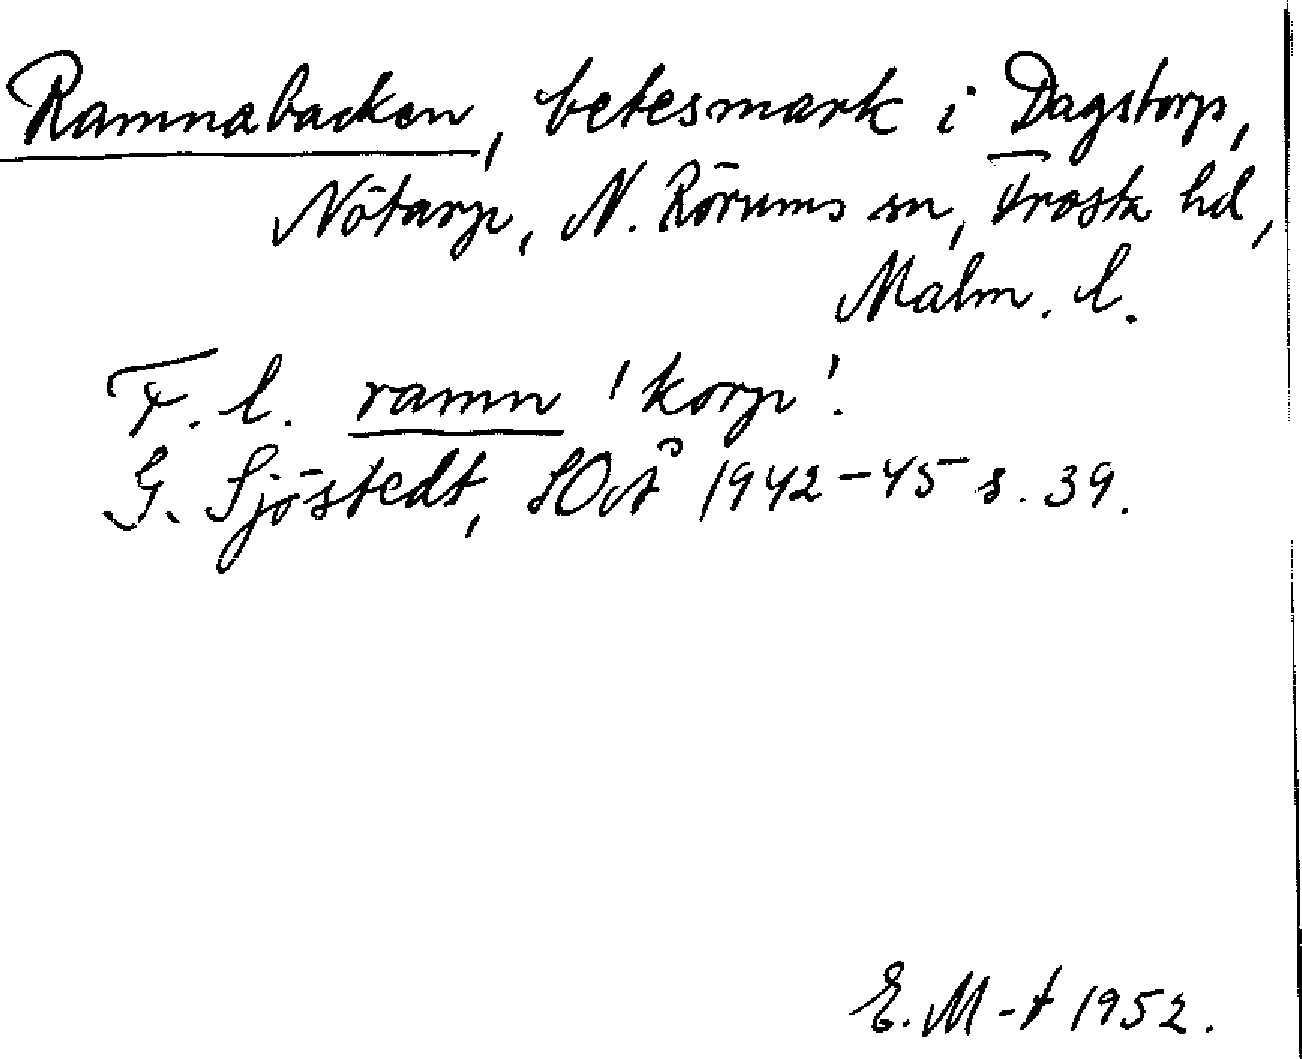 Ramnabacken, betesmark i Dagstorp,
Nötarp, N. Rörums sn, Frosta hd,
Malm. l.
F. l. ramn 'korp'.
G. Sjöstedt, SOÅ 1942–45 s. 39.
E. M-t 1952.